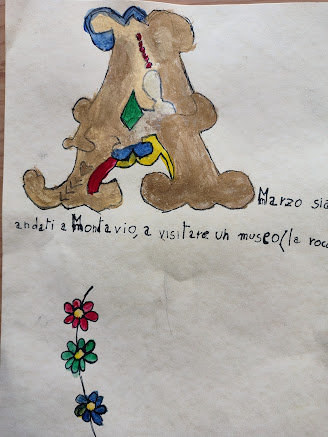 A Marzo sia
andati a Montavio, a visitare un museo(la roc